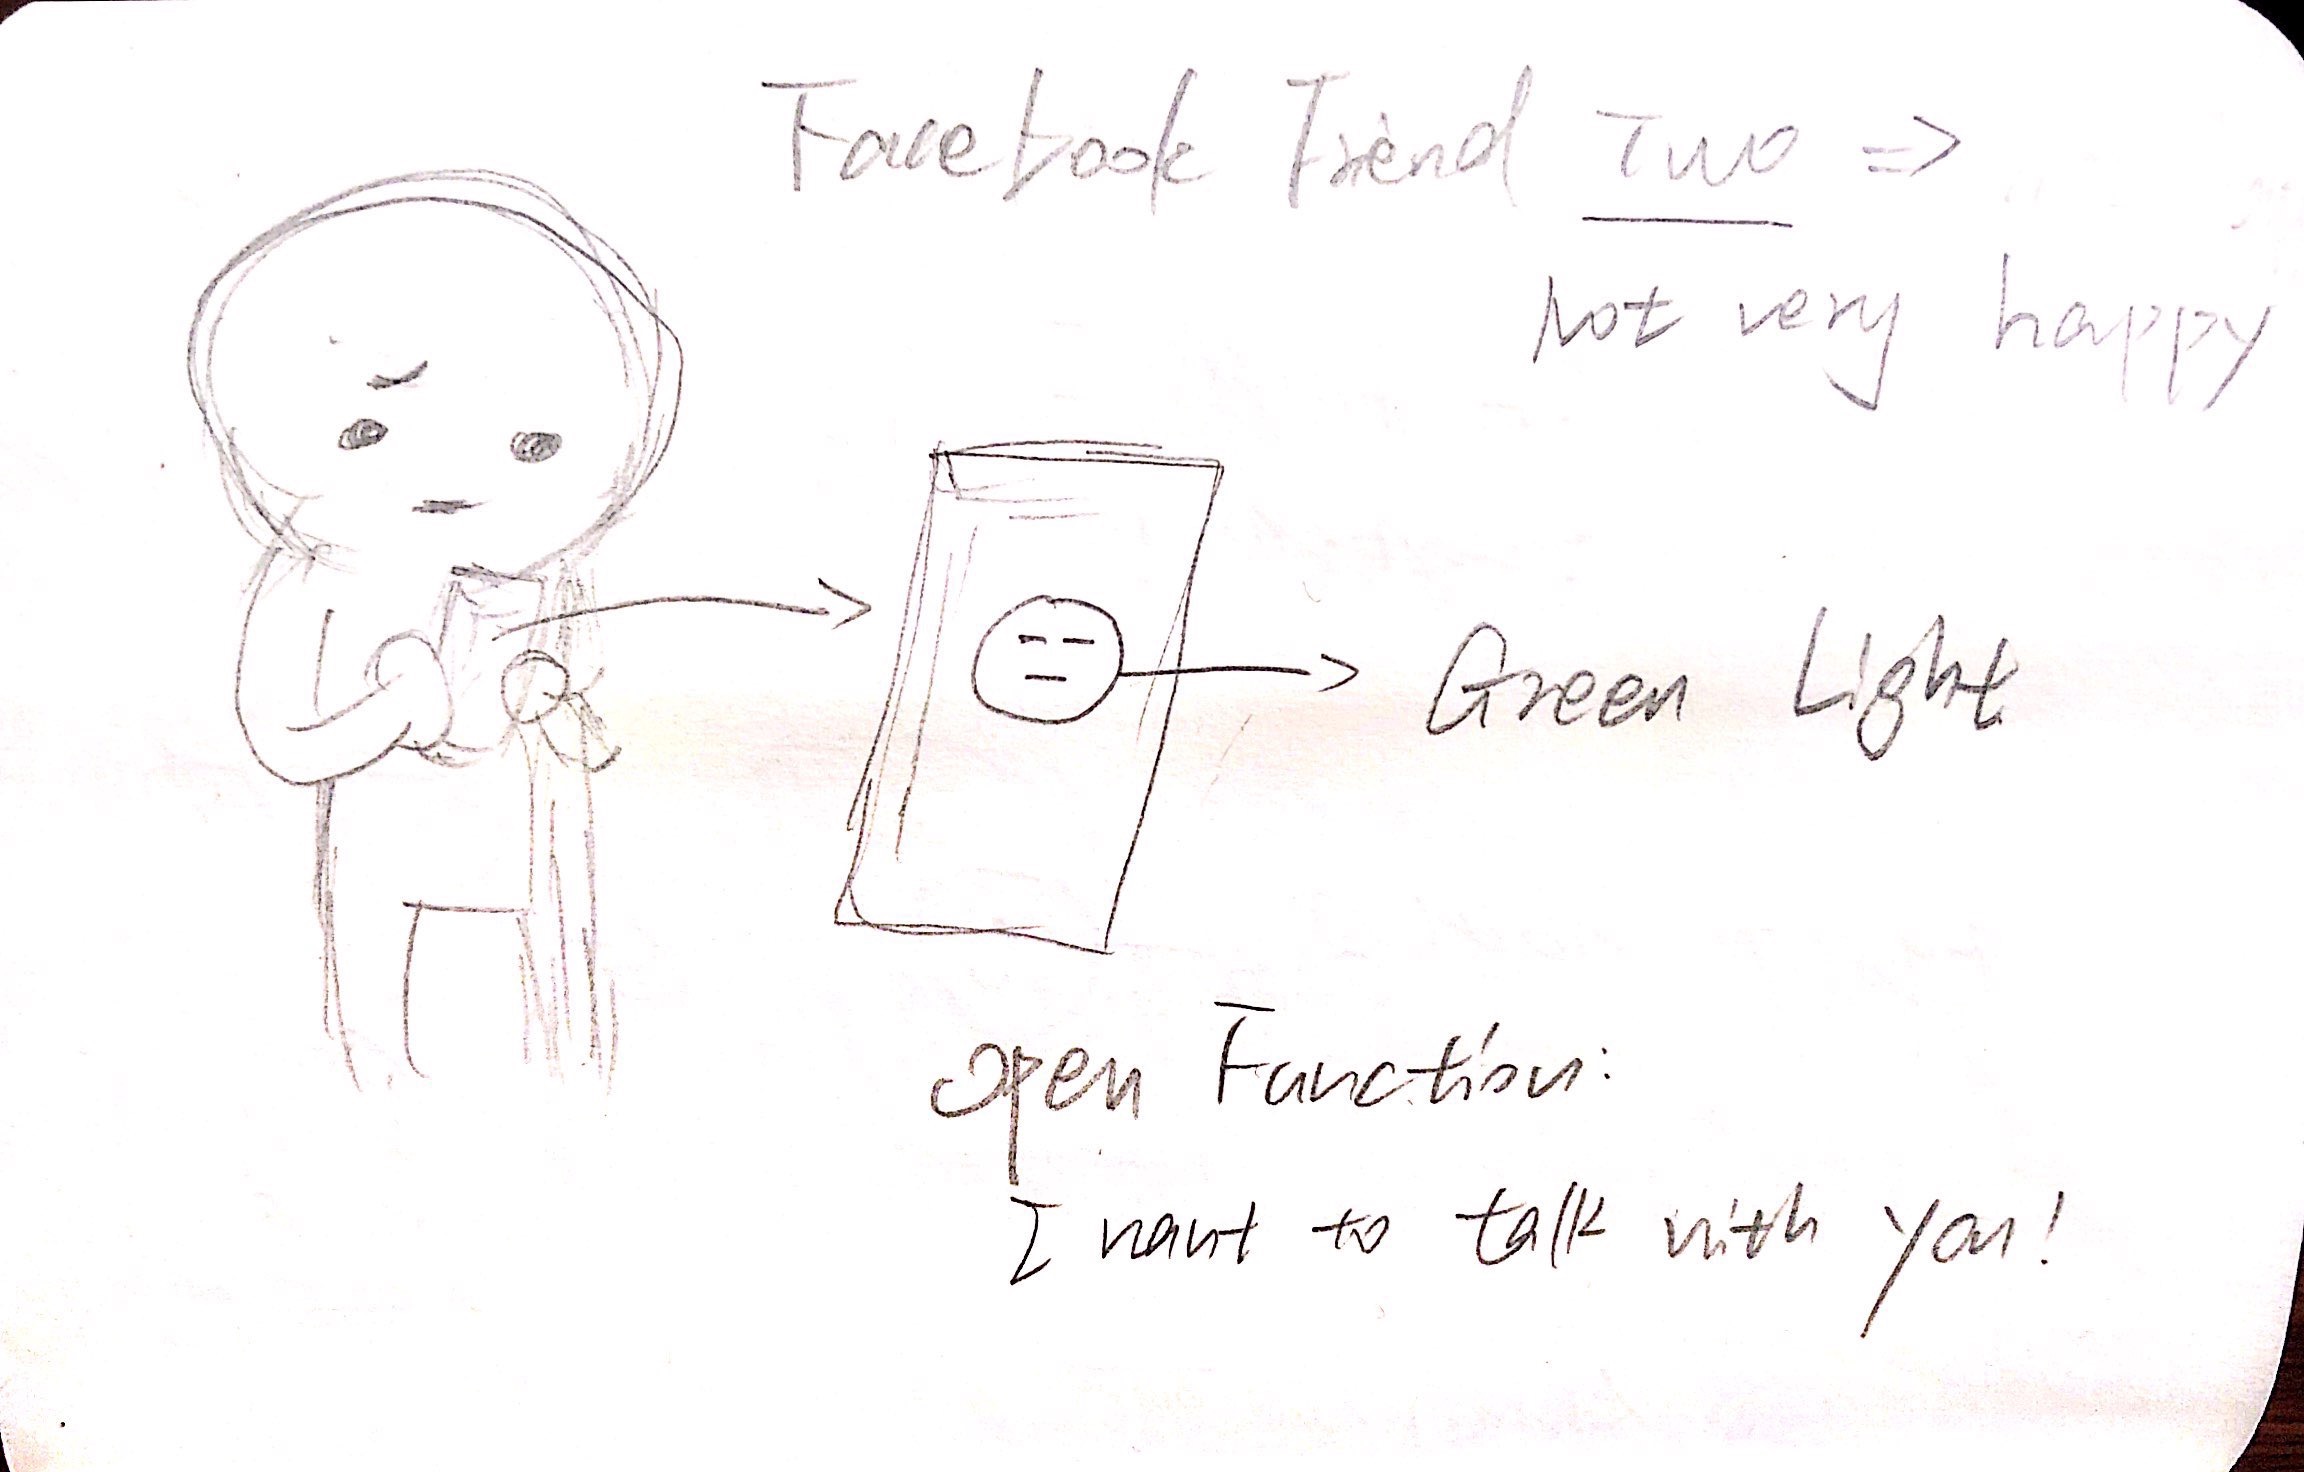 Facebook Friend Two =>
not very happy
Green Light
open Function:
I want to talk with you!